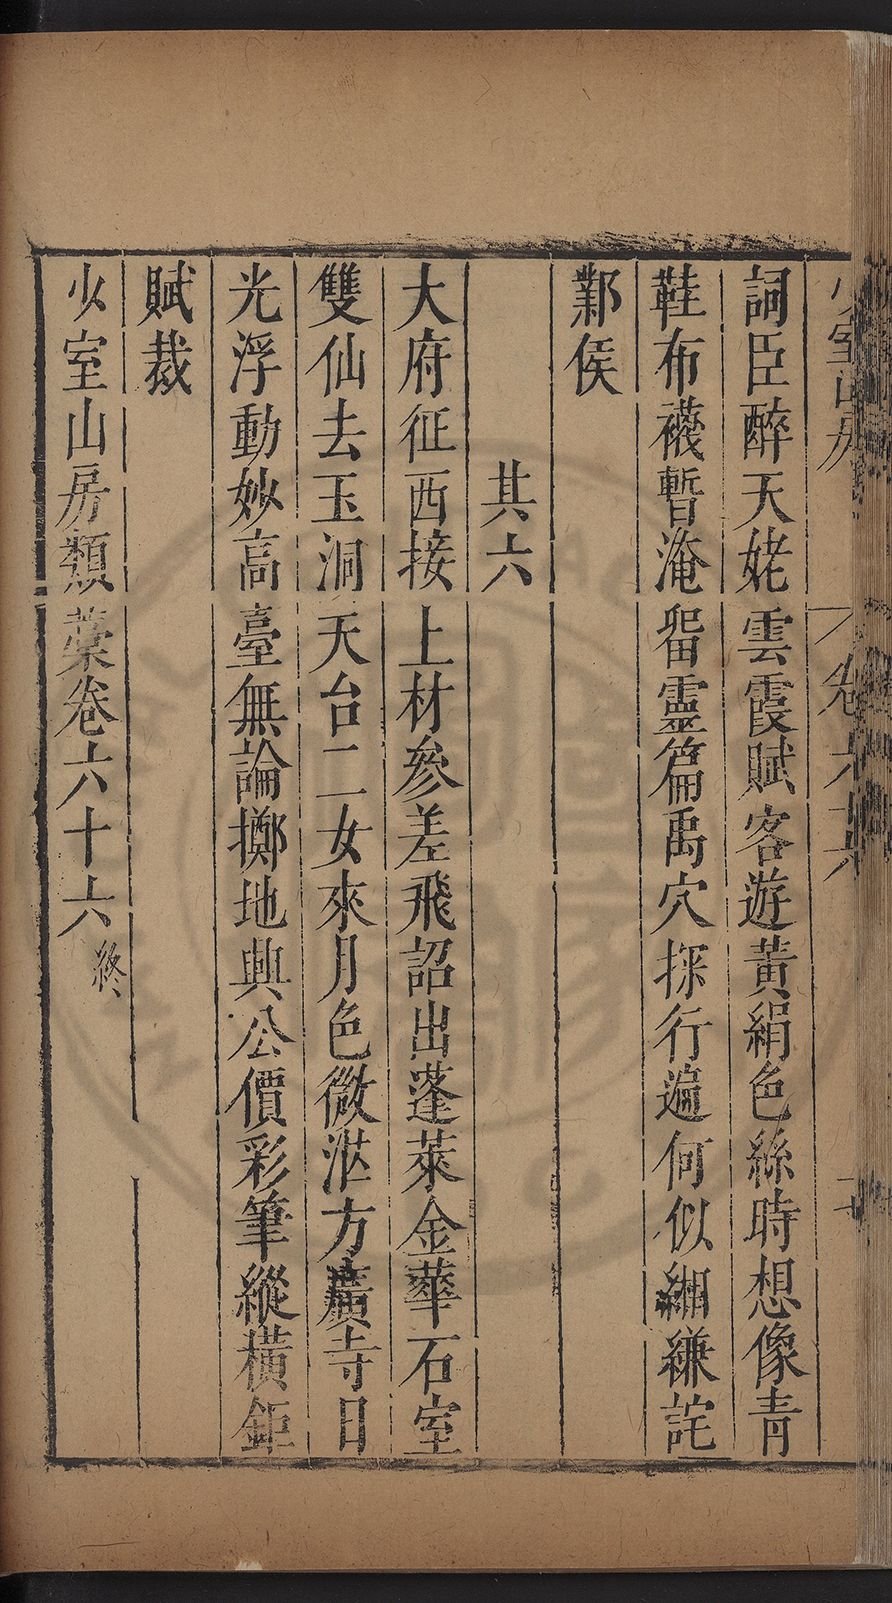 詞臣醉天姥雲霞賦客遊黃絹色絲時想像青
鞋布襪暫淹畱靈篇禹穴探行遍何似緗縑詫
鄴侯
其六
大府征西接上材參差飛詔出蓬萊金華石室
雙仙去玉洞天台二女來月色微茫方廣寺日
光浮動妙高臺無論擲地興公價彩筆縱橫鉅
賦裁
少室山房類藁卷六十六終